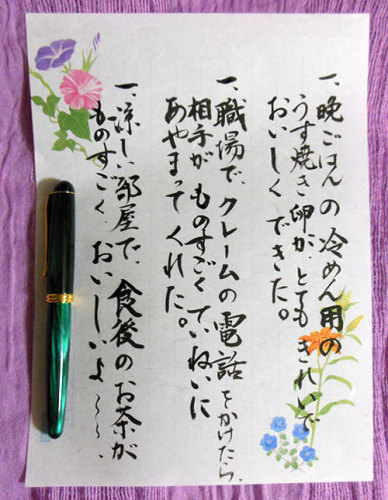 一、晩ごはんの冷めん用の
うす焼き卵が、とてもきれいで
おいしくできた。
一、職場で、クレームの電話をかけたら、
相手がものすごくていねいに
あやまってくれた。
一、涼しい部屋で、食後のお茶が
ものすごく、おいしいよ〜〜。